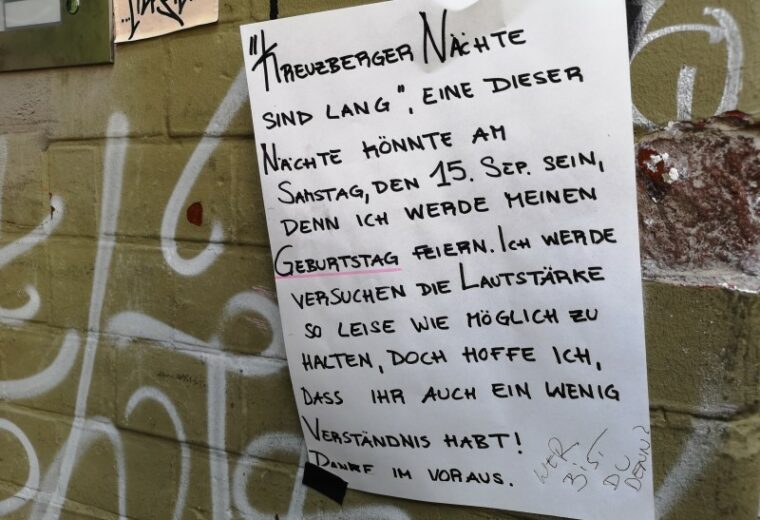 "Kreuzberger Nächte
sind lang", eine dieser
Nächte könnte am
Samstag, den 15. Sep. sein,
denn ich werde meinen
Geburtstag feiern. Ich werde
versuchen die Lautstärke
so leise wie möglich zu
halten, doch hoffe ich,
dass ihr auch ein wenig
Verständnis habt!
Danke im voraus.
WER
BIST
DU
DENN?